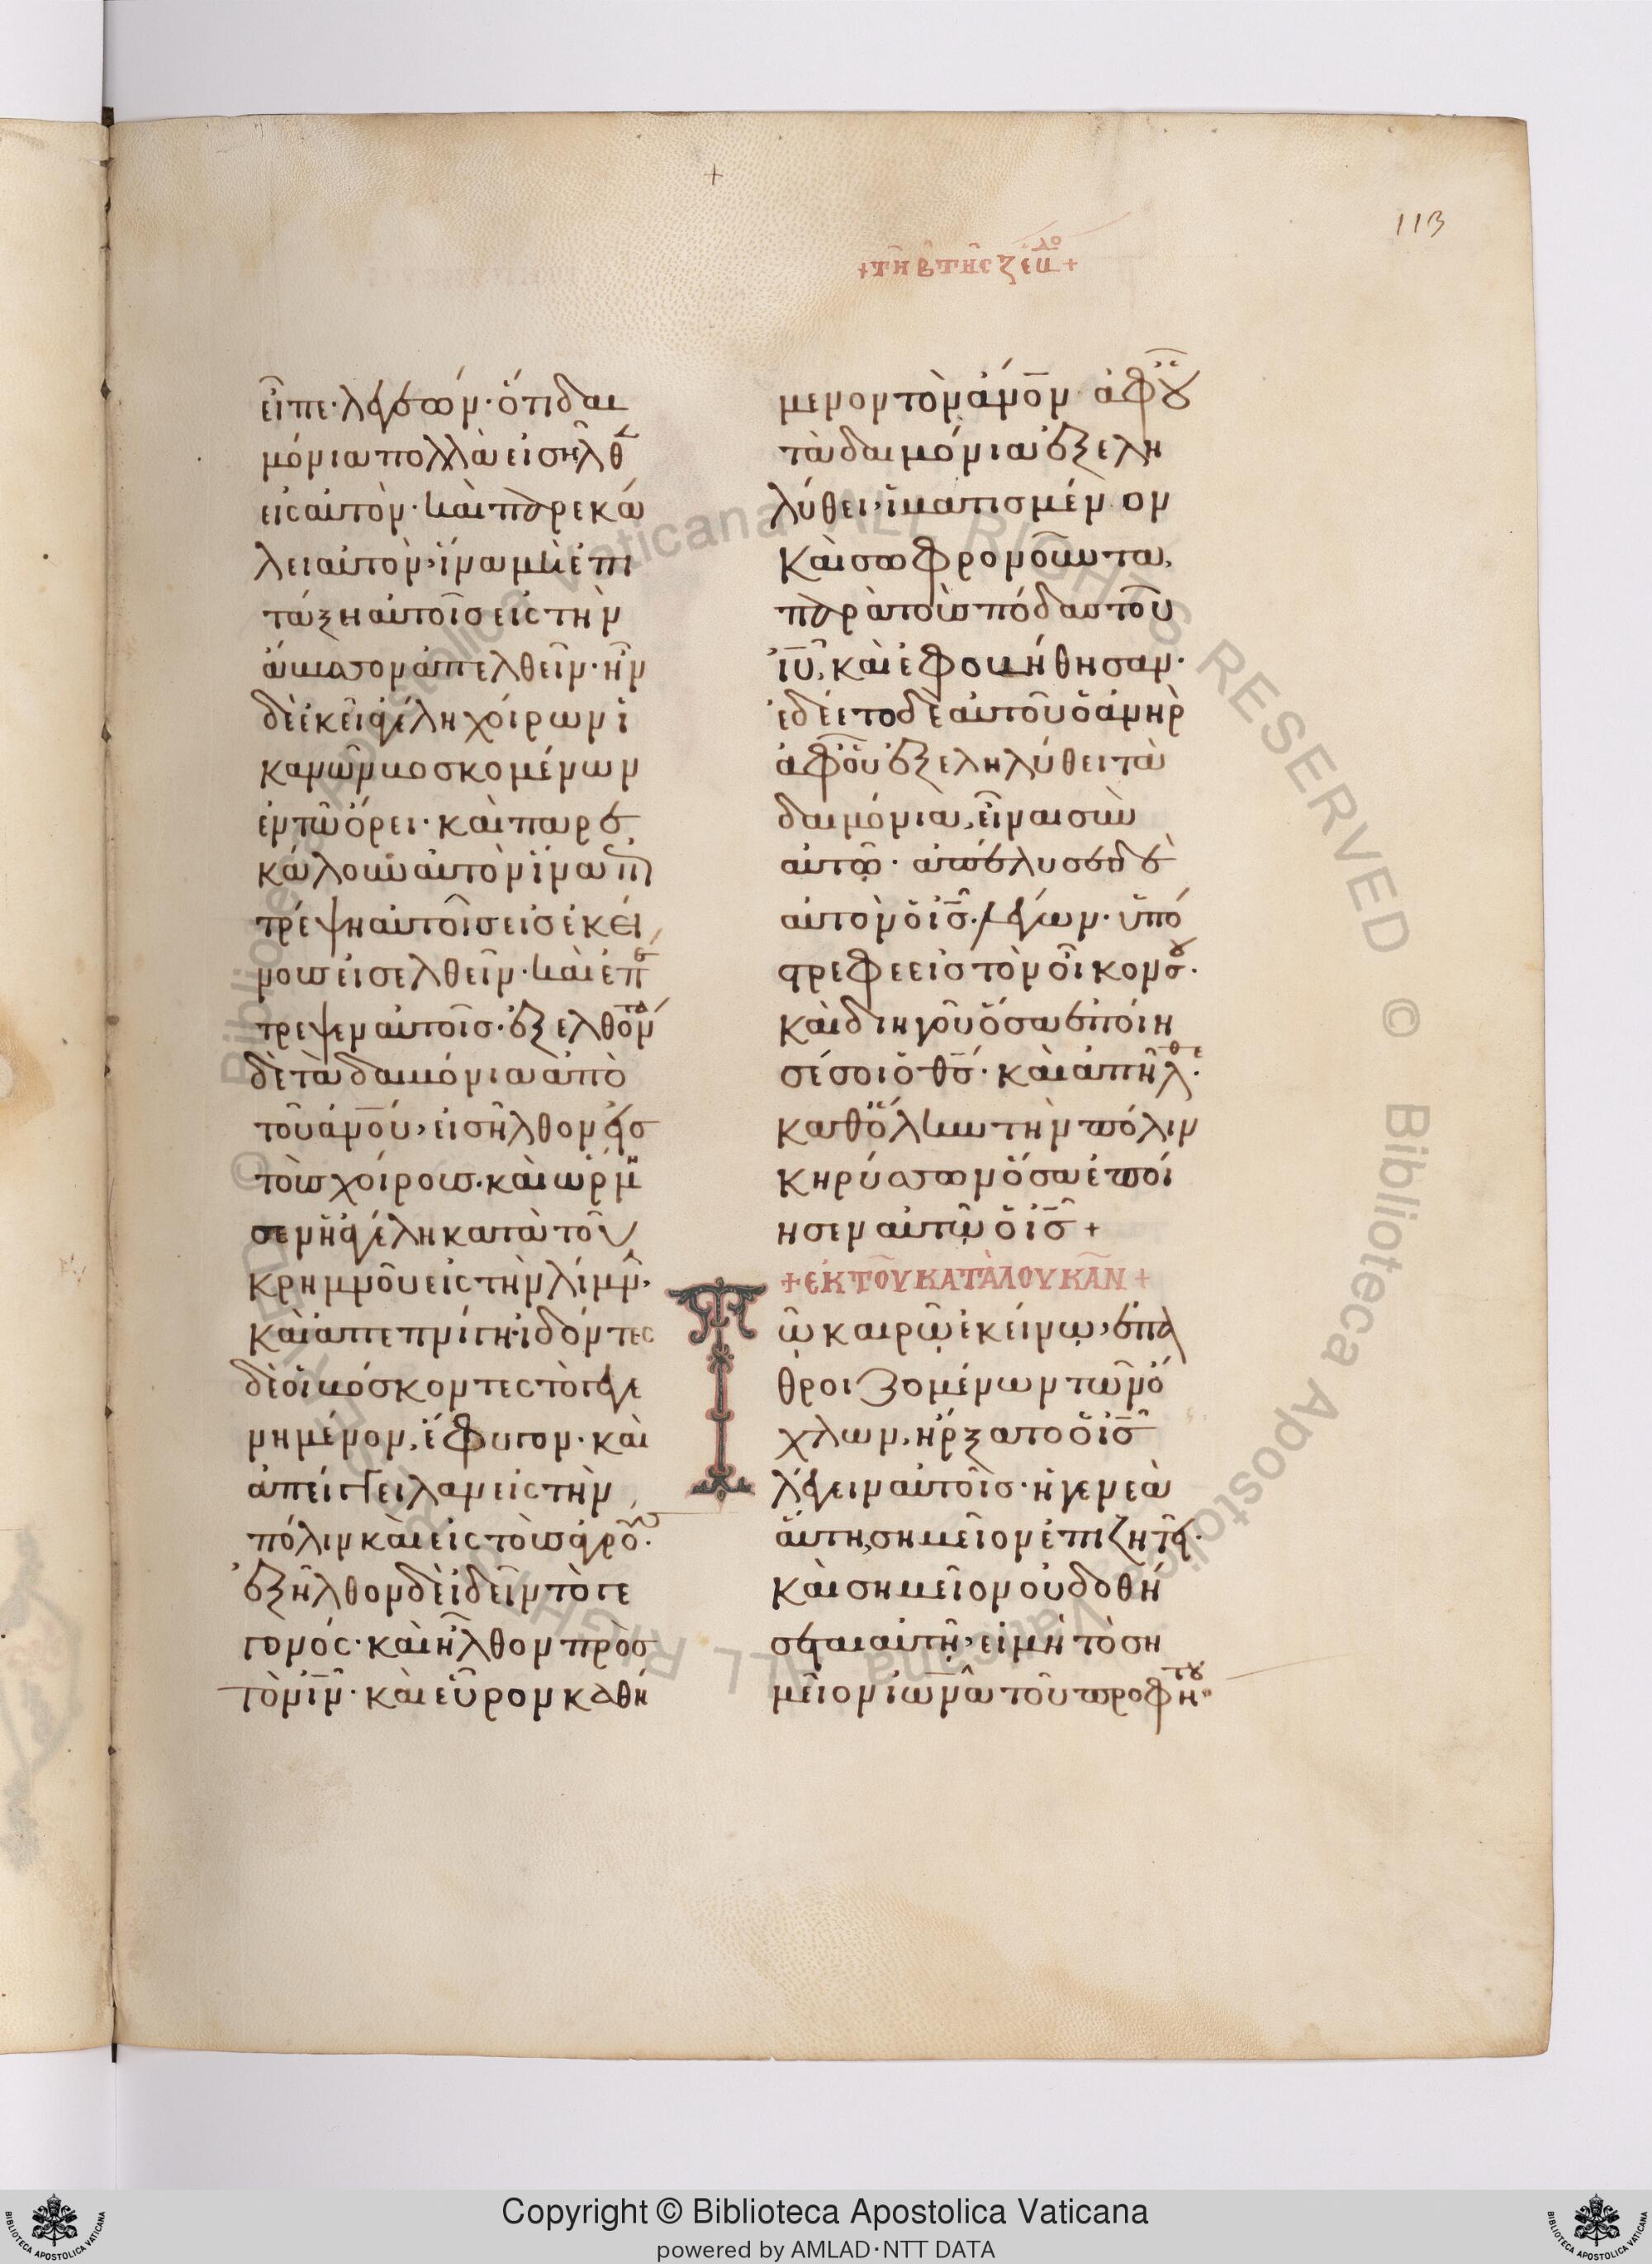 +
113
+τῆ β τῆς ζ ἑβδο+
εἶπε· λεγεών· ὅτι δαι
μόνια πολλὰ εἰσῆλθεν
εἰς αὐτόν· καὶ παρεκά
λει αὐτὸν, ἵνα μὴ ἐπι
τάξη αὐτοῖς εἰς τὴν
ἄβυσσον ἀπελθεῖν· ἦν
δὲ ἐκεῖ ἀγέλη χοίρων ἱ
κανῶν βοσκομένων
ἐν τῶ ὄρει· καὶ παρε
κάλουν αὐτὸν ἵνα ἐπι
τρέψη αὐτοῖς εἰς ἐκεί
νους εἰσελθεῖν· καὶ ἐπέ
τρεψεν αὐτοῖς· ἐξελθόντα
δὲ τὰ δαιμόνια ἀπὸ
τοῦ ἀνου, εἰσῆλθον εἰς
τοὺς χοίρους· καὶ ὥρμη
σεν ἡ ἀγέλη κατὰ τοῦ
κρημνοῦ εἰς τὴν λίμνην,
καὶ ἀπεπνίγη· ἰδόντες
δὲ οἱ βόσκοντες τὸ γεγε
νημένον, ἔφυγον· καὶ
ἀπήγγειλαν εἰς τὴν
πόλιν καὶ εἰς τοὺς ἀγρούς·
ἐξῆλθον δὲ ἰδεῖν τὸ γε
γονός· καὶ ἦλθον πρὸς
τὸν ιν· καὶ εὗρον καθή
μενον τὸν ἀνον ἀφ' οὗ
τὰ δαιμόνια ἐξελη
λύθει, ἱματισμένον
καὶ σωφρονοῦντα,
παρὰ τοὺς πόδας τοῦ
ιυ, καὶ ἐφοβήθησαν·
ἐδέετο δὲ αὐτοῦ ὁ ἀνὴρ
ἀφ' οὗ ἐξεληλύθει τὰ
δαιμόνια, εἶναι σὺν
αὐτῶ· ἀπέλυσε δὲ
αὐτὸν ὁ ις· λέγων· ὑπό
στρεφε εἰς τὸν οἶκον σου·
καὶ διηγοῦ ὅσα ἐποίη
σέ σοι ὁ θς· καὶ ἀπῆλθε·
καθ' ὅλην τὴν πόλιν
κηρύσσων ὅσα ἐποί
ησεν αὐτῶ ὁ ις +
+ἐκ τοῦ κατὰ λουκᾶν+
Τῶ καιρῶ ἐκείνω, ἐπα
θροιζομένων τῶν ὄ
χλων, ἤρξατο ὁ ις
λέγειν αὐτοῖς· ἡ γενεὰ
αὕτη, σημεῖον ἐπιζητεῖ·
καὶ σημεῖον οὐ δοθή
σεται αὐτῆ, εἰ μὴ τὸ ση
μεῖον ἰωνᾶ τοῦ προφήτου·
© Biblioteca Apostolica Vaticana ALL RIGHTS RESERVED
Copyright © Biblioteca Apostolica Vaticana
powered by AMLAD·NTT DATA
BIBLIOTECA APOSTOLICA VATICANA
BIBLIOTECA APOSTOLICA VATICANA